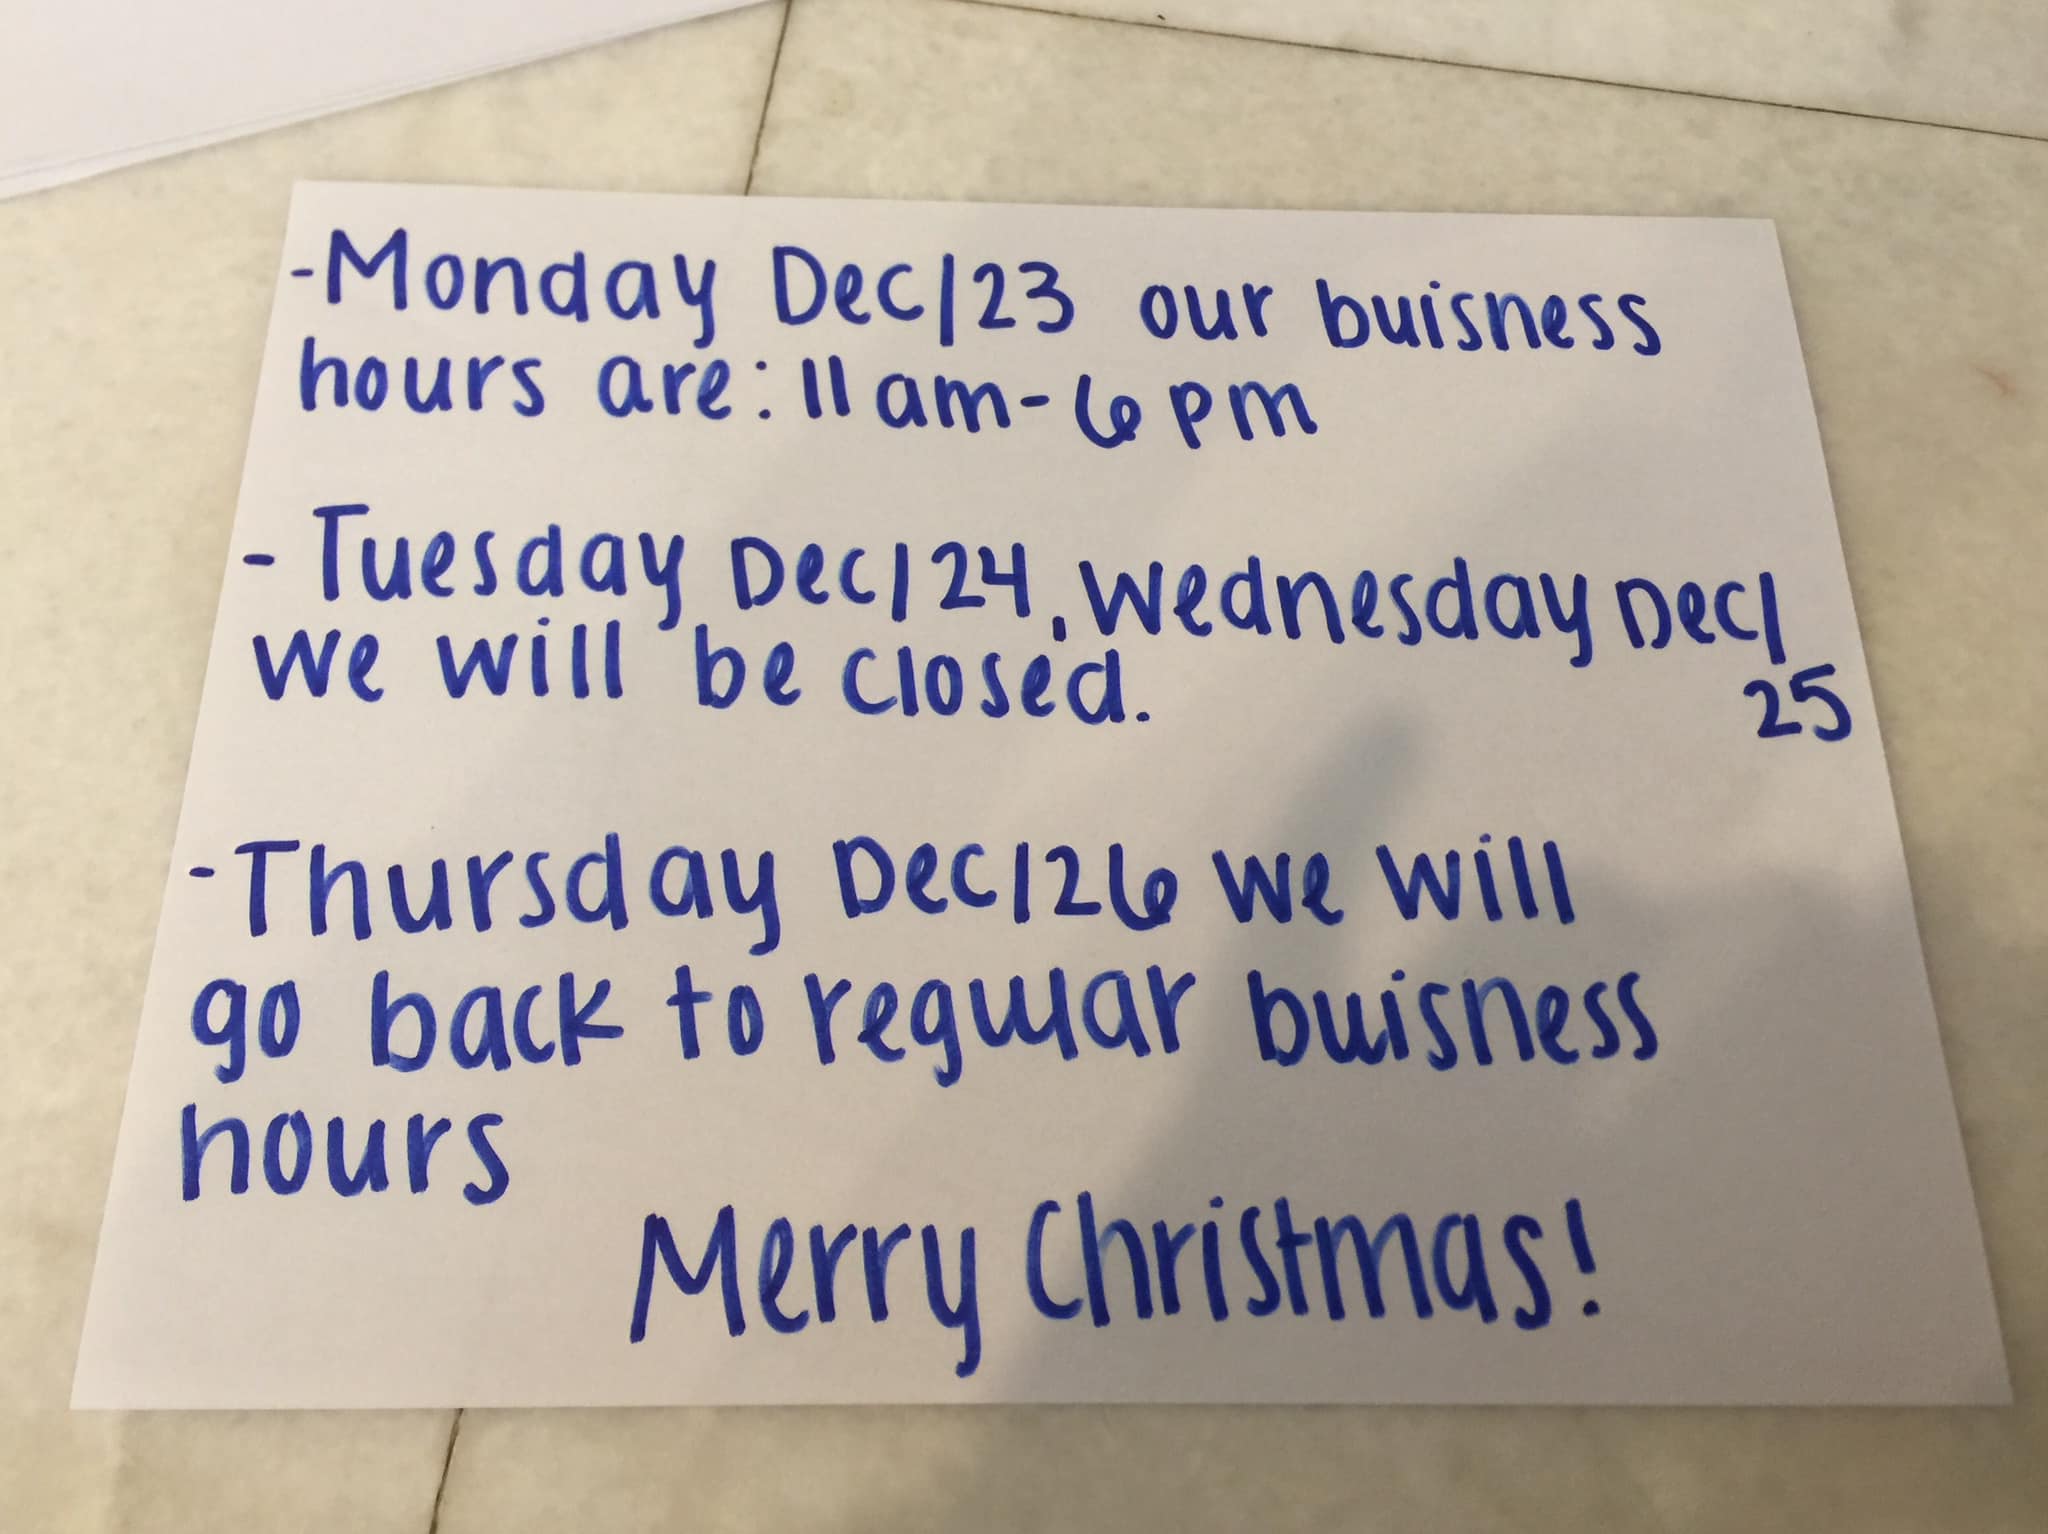 -Monday Dec/23 our buisness
hours are: 11am-6pm
- Tuesday Dec/24, Wednesday Dec/
25
we will be closed.
-Thursday Dec/26 we will
go back to regular buisness
hours
Merry Christmas!